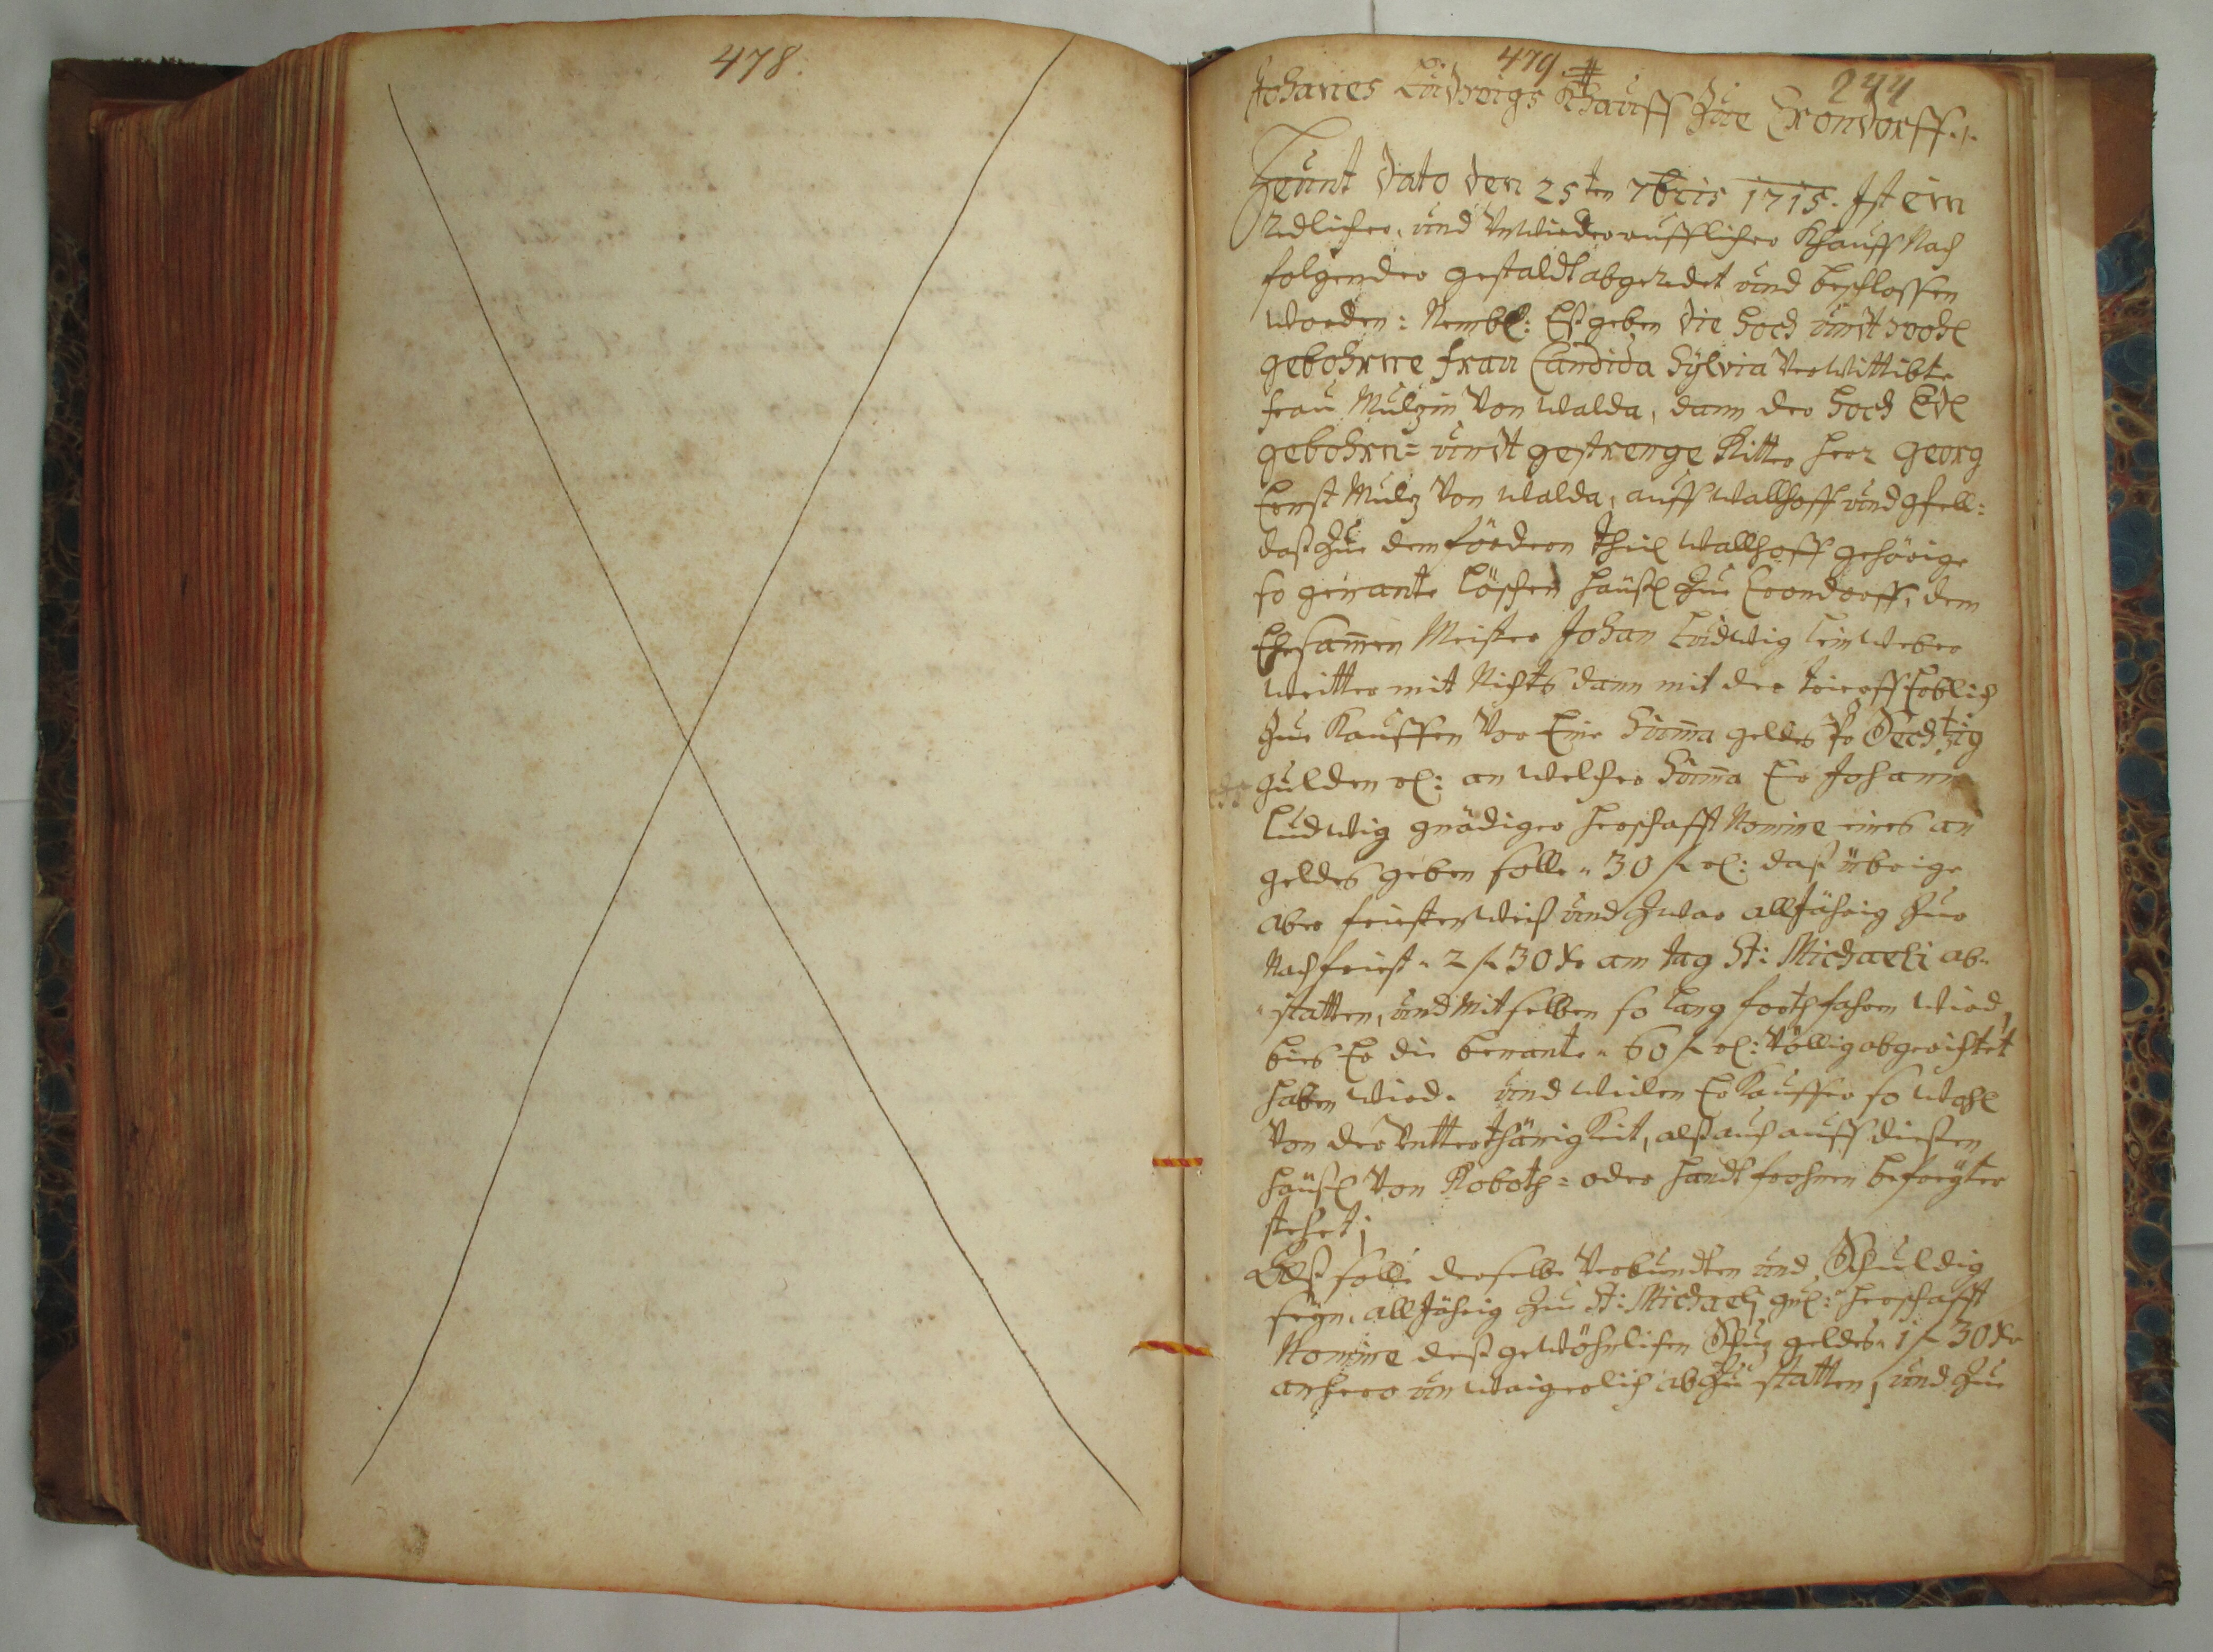 478.
479. #
244
Johanes Ludwigs Khauff Zue Crondorff.
Heunt dato den 25ten 7bris 1715. Ist ein
Redlicher, und Unwiederrufflicher Khauff Nach
folgender gestaldt abgeredet und beschlossen
worden: Nembl: Eß geben die Hoch undt wohl
gebohrne frau Candida Sylvia Verwittibte
frau Mulzin Von Walda, dann der Hoch Edl
gebohrn= undt gestrenge Ritter Herr Georg
Ernst Mulz Von Walda, auff Wallhoff und gfell:
daß Zue dem fördern theil Wallhoff gehörige
so genante Löschen Häußl Zue Crondorff, dem
Ehrsammen Meister Johan Ludwig Leinweber
weitter mit Nichts dann mit der trieff Erblich
Zue Kauffen Vor Eine Summa geldes Pr Sechtzig
gulden rl: an welcher Summa Er Johann
Ludwig gnädiger Herschafft Nomine eines an
geldes geben solle " 30 f rl: daß übrige
aber friestenweiß und Zwar all Jährig Zur
Nachfriest " 2 f 30 Xr am tag St: Michaeli ab=
=statten, und Mit selben so lang forth fahren wird,
bies Er die benante " 60 f rl: Völlig abgerichtet
haben wird. und weilen Er Kauffer so wohl
Von der Untterthänigkeit, alß auch auff diesen
Häußl Von Roboth= oder handt frohnen befreyter
stehet;
Alß solle derselbe Verbundten und Schuldig
seyn, all Jährig Zu St: Michaeli gnl: Herschafft
Nomine deß gewöhnlichen Schuz geldes " 1 f 30 Xr
anhero unwaigerlich abzustatten, und Zue